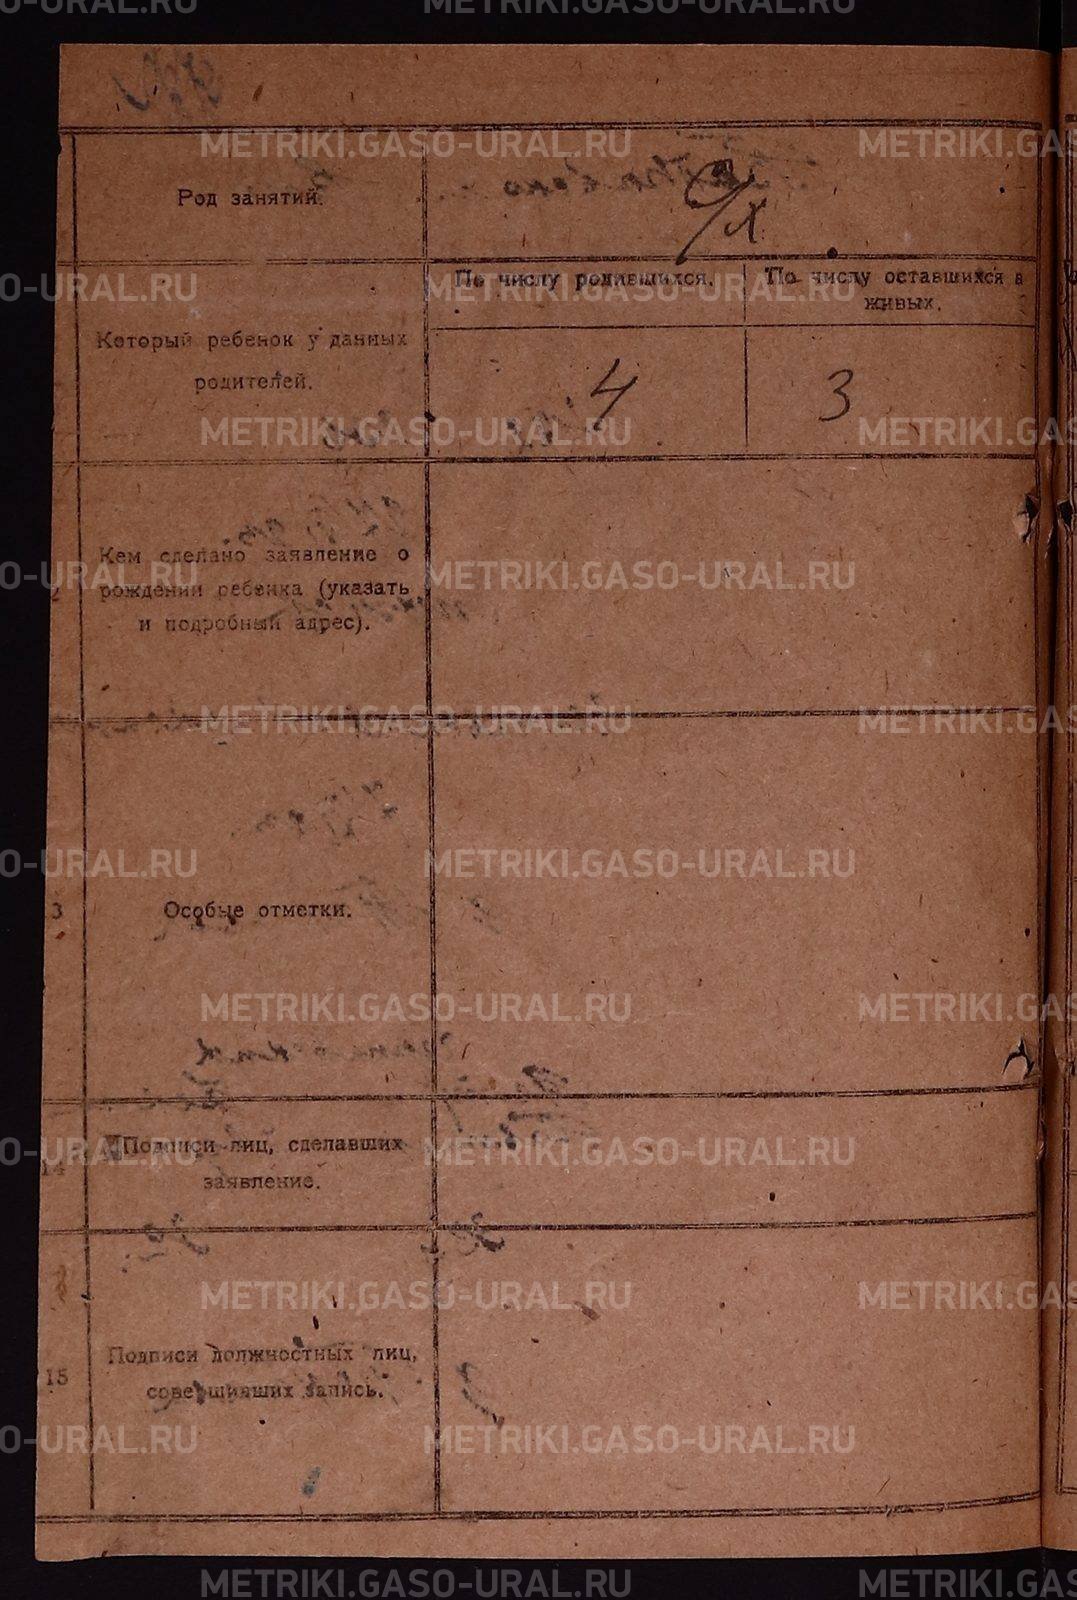 Род занятий.
С/Х
По числу родившихся.
По числу оставшихся в
живых.
Который ребенок у данных
родителей.
4
3
2
Кем сделано заявление о
рождении ребенка (указать
и подробный адрес).
3
Особые отметки.
14
Подписи лиц, сделавших
заявление.
15
Подписи должностных лиц,
совершивших запись.
METRIKI.GASO-URAL.RU